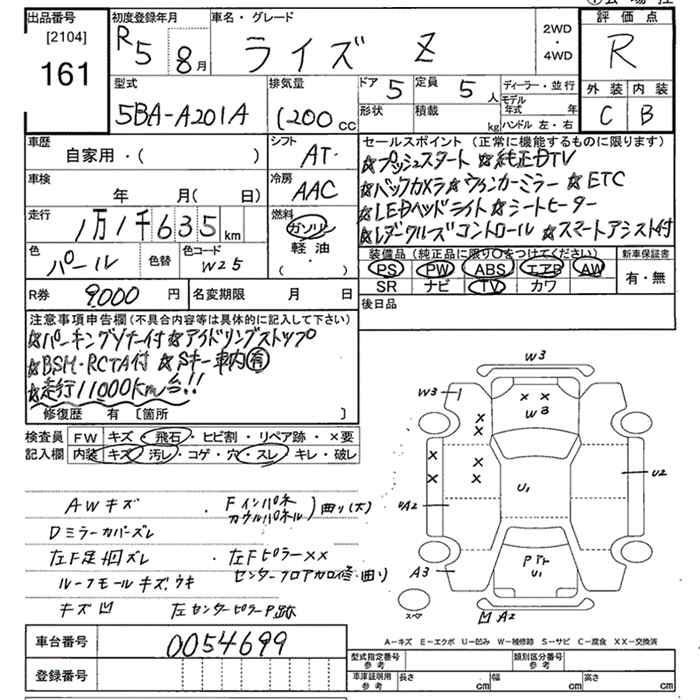 出品番号
[2104]
161
初度登録年月
R5 8月
車名・グレード
ライズ Z
2WD
・
4WD
評価点
R
外装 内装
C B
型式
5BA-A201A
排気量
1200 cc
ドア 5
定員 5 人
形状
積載 kg
ディーラー・並行
モデル年式 年
ハンドル 左・右
車歴
自家用・( )
シフト
AT
車検
年 月( 日)
冷房
AAC
走行
1万1千635 km
燃料
ガソリン
軽油
( ・ )
色
パール
色替
色コード
W25
セールスポイント (正常に機能するものに限ります)
☆プッシュスタート ☆純正DTV
☆バックカメラ☆ウィンカーミラー ☆ETC
☆LEDヘッドライト ☆シートヒーター
☆レーダークルーズコントロール ☆スマートアシスト付
装備品 (純正品に限り○をつけてください)
PS PW ABS エアB AW
SR ナビ TV カワ
新車保証書
有・無
後日品
R券 9,000 円
名変期限 月 日
注意事項申告欄 (不具合内容等は具体的に記入して下さい)
☆パーキングソナー付 ☆アイドリングストップ
☆BSM・RCTA付 ☆Sキー車内有
☆走行11000km台!!
修復歴 有 [箇所 ]
検査員 FW キズ・飛石・ヒビ割・リペア跡・×要
記入欄 内装 キズ・汚レ・コゲ・穴・スレ・キレ・破レ
AWキズ
Dミラーカバーズレ
左F足回ズレ
ルーフモールキズ、ウキ
キズ凹
Fインパネ
カウルパネル 曲り(大)
左Fピラー××
センターフロア
修・曲り
左センターピラーP跡
W3
W3
W3
U2
A2
U1
A3
Pテト
U1
A2
スペア
A-キズ E-エクボ U-凹み W-補修跡 S-サビ C-腐食 XX-交換済
車台番号
0054699
登録番号
型式指定番号 参考
類別区分番号 参考
車庫証明用 参考
長さ cm
幅 cm
高さ cm